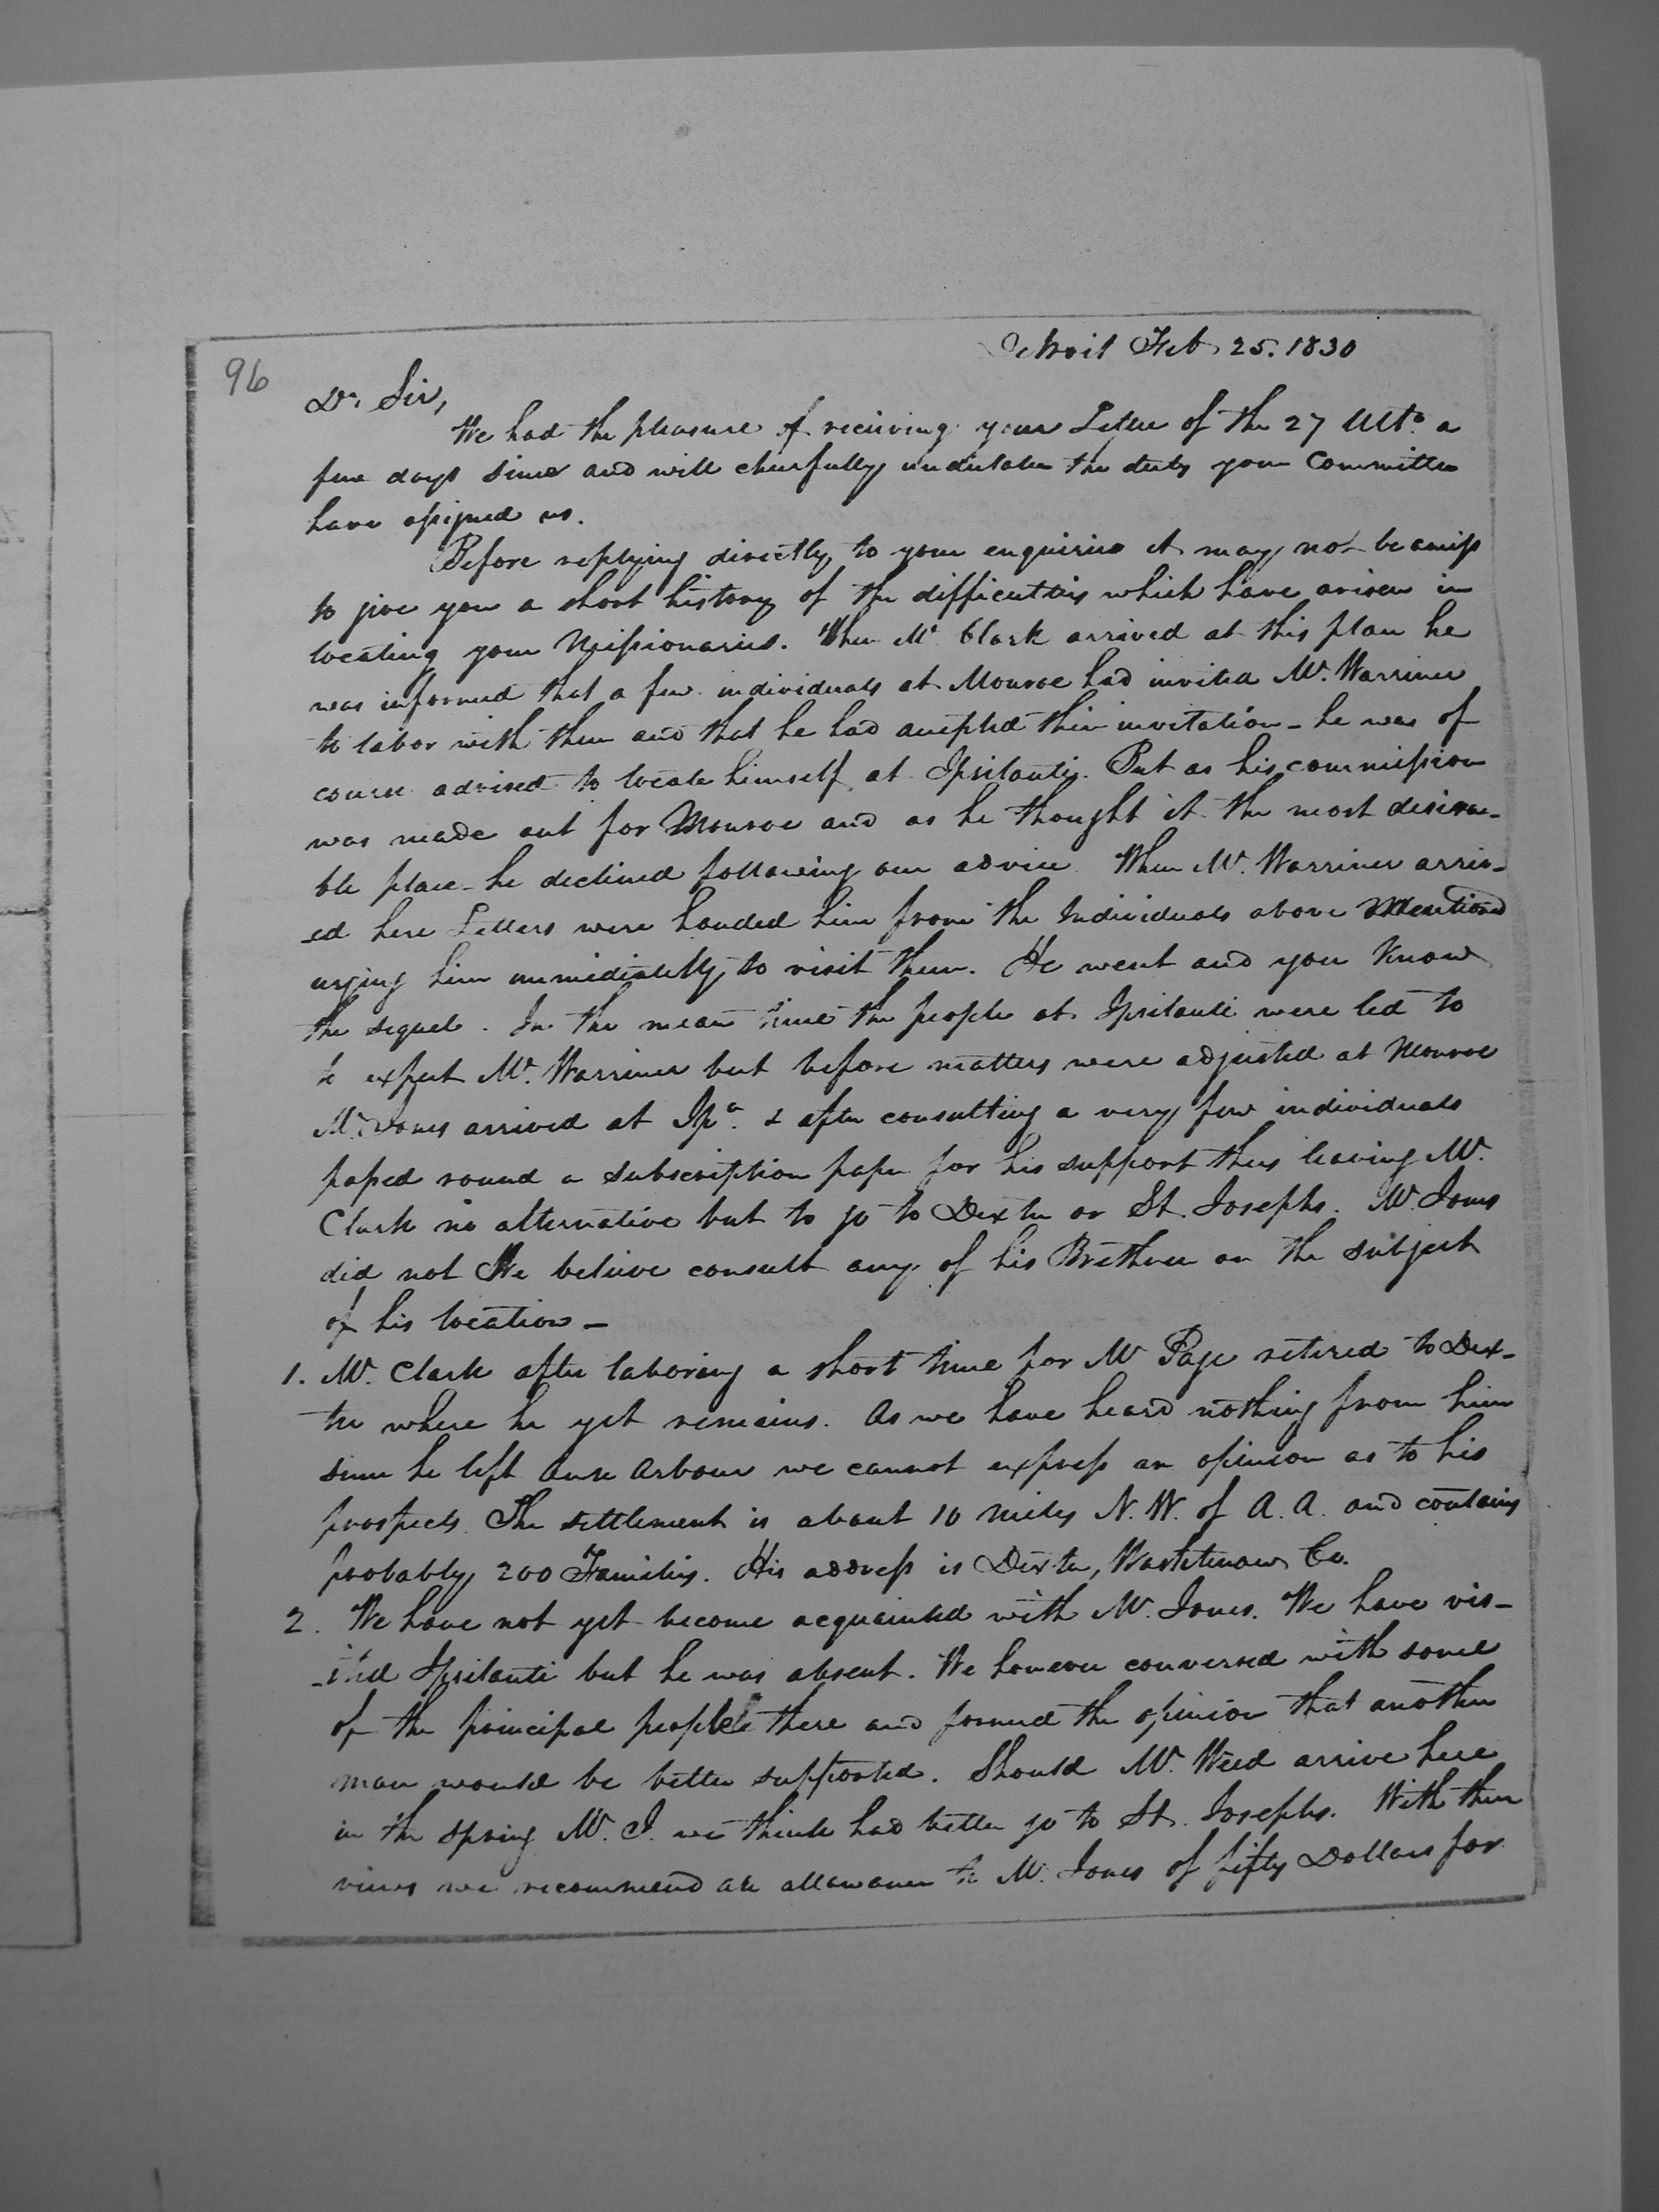 96
Detroit Feb 25. 1830
Dr. Sir,
We had the pleasure of receiving your Letter of the 27 Ulto a
few days since and will cheerfully undertake the duty your Committee
have assigned us.
Before replying directly to your enquiries it may not be amiss
to give you a short history of the difficulties which have arisen in
locating your Missionaries. When Mr Clark arrived at this place he
was informed that a few individuals at Monroe had invited Mr. Warriner
to labor with them and that he had accepted their invitation - he was of
course advised to locate himself at Ipsilanti. But as his commission
was made out for Monroe and as he thought it the most desira-
ble place - he declined following our advice When Mr. Warriner arriv-
-ed here Letters were handed him from the Individuals above Mentioned
urging him immediately to visit them. He went and you Know
the sequel. In the mean time the people at Ipsilanti were led to
to expect Mr. Warriner but before matters were adjusted at Monroe
Mr. Jones arrived at Ipa. & after consulting a very few individuals
passed round a subscription paper for his support thus leaving Mr.
Clark no alternative but to go to Dexter or St. Josephs. Mr. Jones
did not We believe consult any of his Brethren on the subject
of his location -
1. Mr. Clark after laboring a short time for Mr Page retired to Dex-
ter where he yet remains. As we have heard nothing from him
since he left Ann Arbour we cannot express an opinion as to his
prospects. The settlement is about 10 miles N. W. of A. A. and contains
probably 200 Families. His address is Dexter, Washtenaw Co.
2. We have not yet become acquainted with Mr. Jones. We have vis-
-ited Ipsilanti but he was absent. We however conversed with some
of the principal people there and formed the opinion that another
man would be better supported. Should Mr. Weed arrive here
in the spring Mr. J. we think had better go to St. Josephs. With these
views we recommend an allowance to Mr. Jones of fifty Dollars for